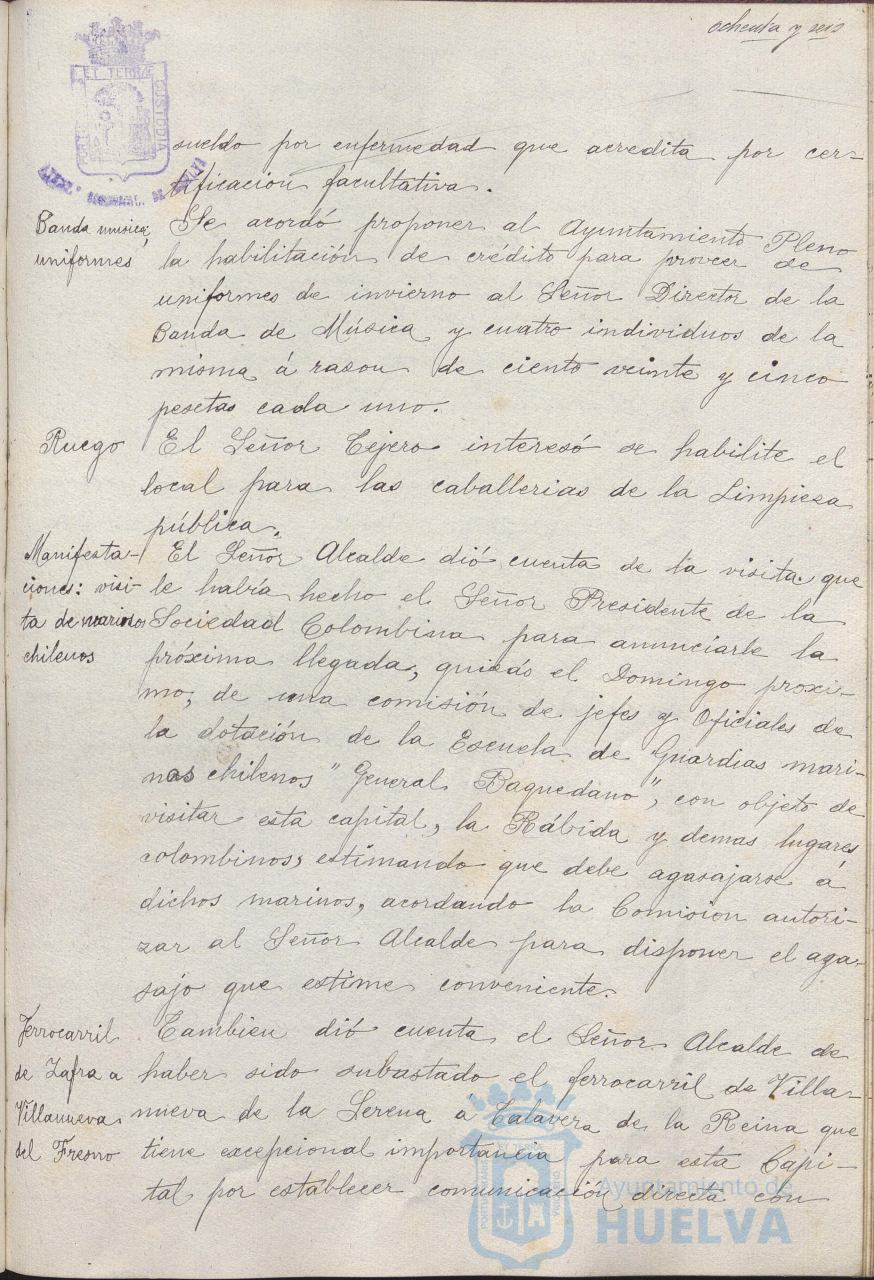 ochenta y seis
ET TERRÆ
CUSTODIA
sueldo por enfermedad que acredita por cer-
tificacion facultativa.
Banda música,
uniformes
Se acordó proponer al Ayuntamiento Pleno
la habilitación de crédito para proveer de
uniformes de invierno al Señor Director de la
Banda de Música y cuatro individuos de la
misma á rason de ciento veinte y cinco
pesetas cada uno.
Ruego
El Señor Tejero interesó se habilite el
local para las caballerias de la Limpiesa
pública.
Manifesta-
ciones: visi-
ta de marinos
chilenos
El Señor Alcalde dió cuenta de la visita que
le había hecho el Señor Presidente de la
Sociedad Colombina para anunciarle la
próxima llegada, quizás el Domingo proxi-
mo, de una comisión de jefes y Oficiales de
la dotación de la Escuela de Guardias mari-
nas chilenos "General Baquedano", con objeto de
visitar esta capital, la Rábida y demas lugares
colombinos, estimando que debe agasajarse á
dichos marinos, acordando la Comision autori-
zar al Señor Alcalde para disponer el aga-
sajo que estime conveniente.
Ferrocarril
de Zafra a
Villanueva
del Fresno
Tambien dió cuenta el Señor Alcalde de
haber sido subastado el ferrocarril de Villa-
nueva de la Serena á Talavera de la Reina que
tiene excepcional importancia para esta Capi-
tal por establecer comunicación directa con
Ayuntamiento de
HUELVA